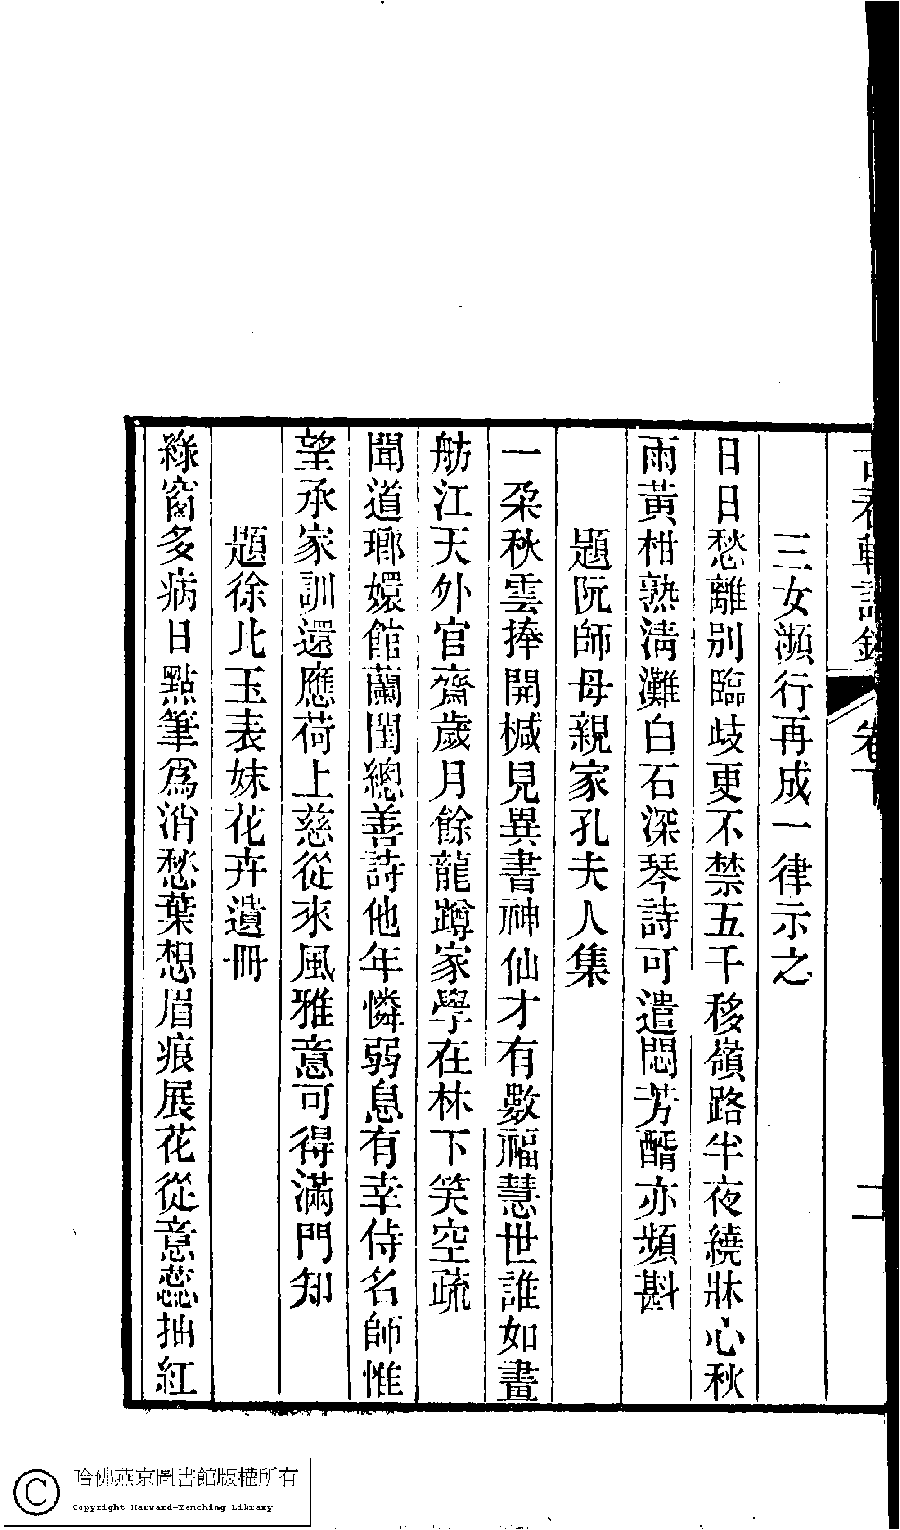 古春軒詩鈔 卷下 二
三女瀕行再成一律示之
日日愁離別臨歧更不禁五千移嶺路半夜繞牀心秋
雨黃柑熟淸灘白石深琴詩可遣悶芳醑亦頻斟
題阮師母親家孔夫人集
一朶秋雲捧開椷見異書神仙才有數福慧世誰如畫
舫江天外官齋歲月餘龍蹲家學在林下笑空疏
聞道瑯嬛館蘭閨總善詩他年憐弱息有幸侍名師惟
望承家訓還應荷上慈從來風雅意可得滿門知
題徐比玉表妹花卉遺冊
綠窗多病日點筆爲消愁葉想眉痕展花從意蕊抽紅
哈佛燕京圖書館版權所有
Copyright Harvard-Yenching Library